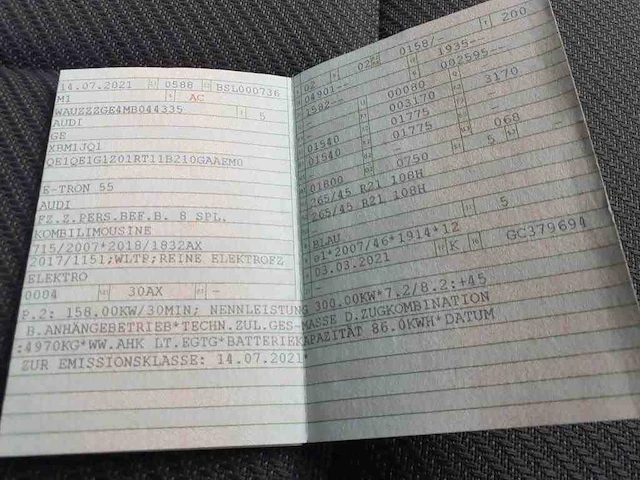 14.07.2021 0588 BSL000736
M1 AC
WAUZZZGE4MB044335 5
AUDI
GE
XBM1JQ1
QE1QE1G1Z01RT11B210GAAEM0
E-TRON 55
AUDI
FZ.Z.PERS.BEF.B. 8 SPL.
KOMBILIMOUSINE
715/2007*2018/1832AX
2017/1151;WLTP;REINE ELEKTROFZ
ELEKTRO
0004 30AX -
02 02 0158/- 200
04901-- 1935--
1582-- 002595--
00080 3170
003170
01540 01775
01540 01775 068
01800 0750 5 -
265/45 R21 108H
265/45 R21 108H
BLAU 5
e1*2007/46*1914*12
03.03.2021 K GC379694
P.2: 158.00KW/30MIN; NENNLEISTUNG 300.00KW*7.2/8.2:+45
B.ANHÄNGEBETRIEB*TECHN.ZUL.GES-MASSE D.ZUGKOMBINATION
:4970KG*WW.AHK LT.EGTG*BATTERIEKAPAZITÄT 86.0KWH*DATUM
ZUR EMISSIONSKLASSE: 14.07.2021*